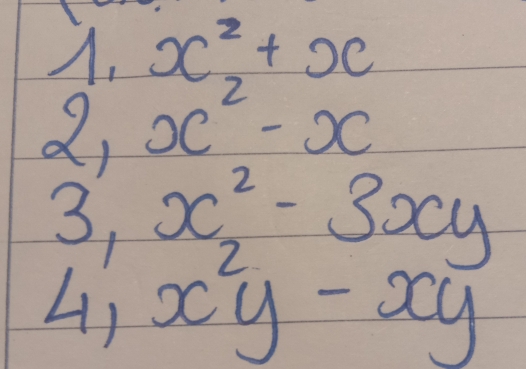 1, x² + x
2, x² - x
3, x² - 3xy
4, x²y - xy